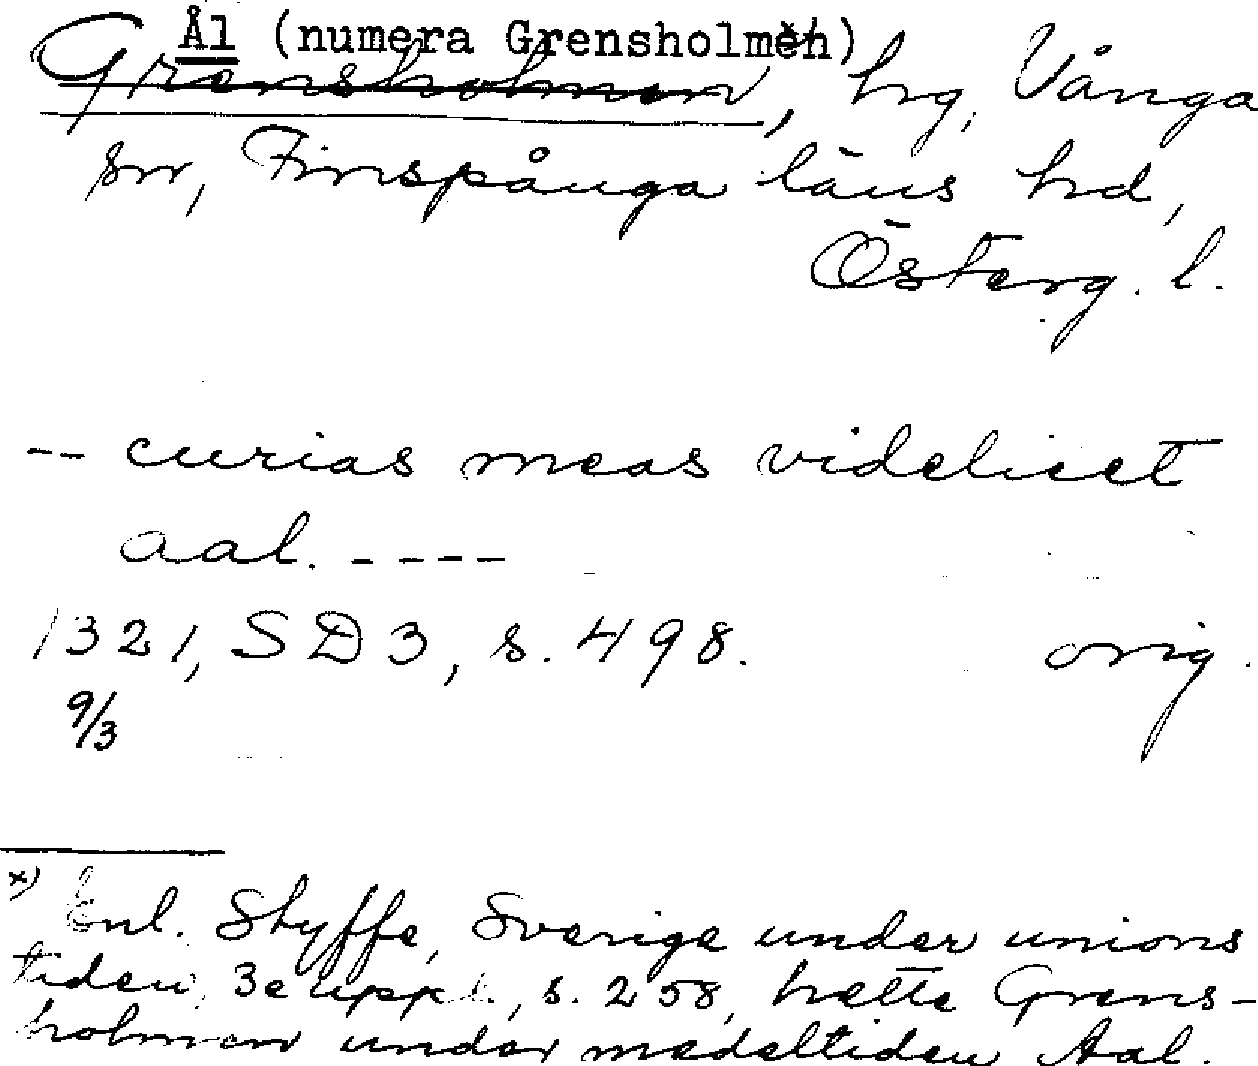 Ål (numera Grensholmen)
Grensholmen, hrg, Vånga
sn, Finspånga läns hd,
Österg. l.
-- curias meas videlicet
aal. ----
1321, SD3, s. 498. orig.
9/3
x) Enl. Styffe, Sverige under unions
tiden, 3e uppl., s. 258, hette Grens-
holmen under medeltiden Aal.